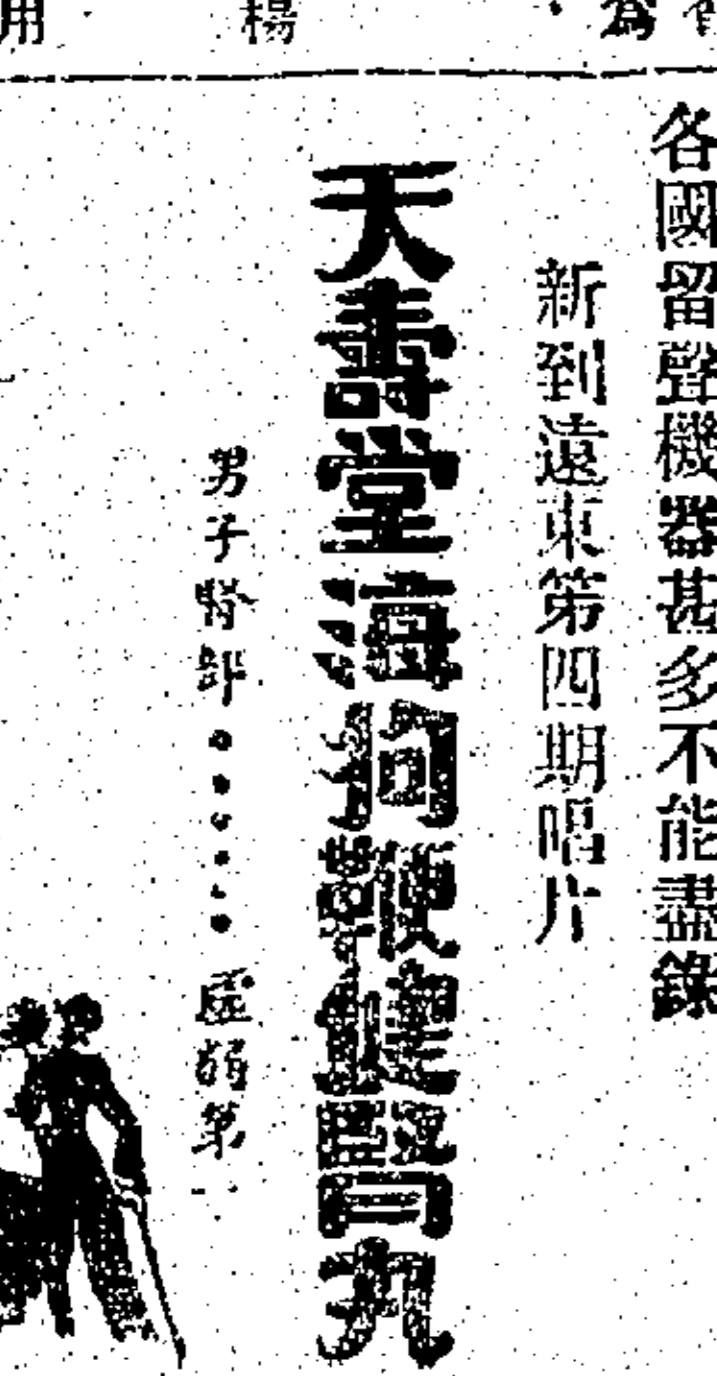 各國留聲機器甚多不能盡錄
新到遠東第四期唱片
天壽堂海狗鞭健腎丸
男子腎部••••••虛弱第一
為
楊
用